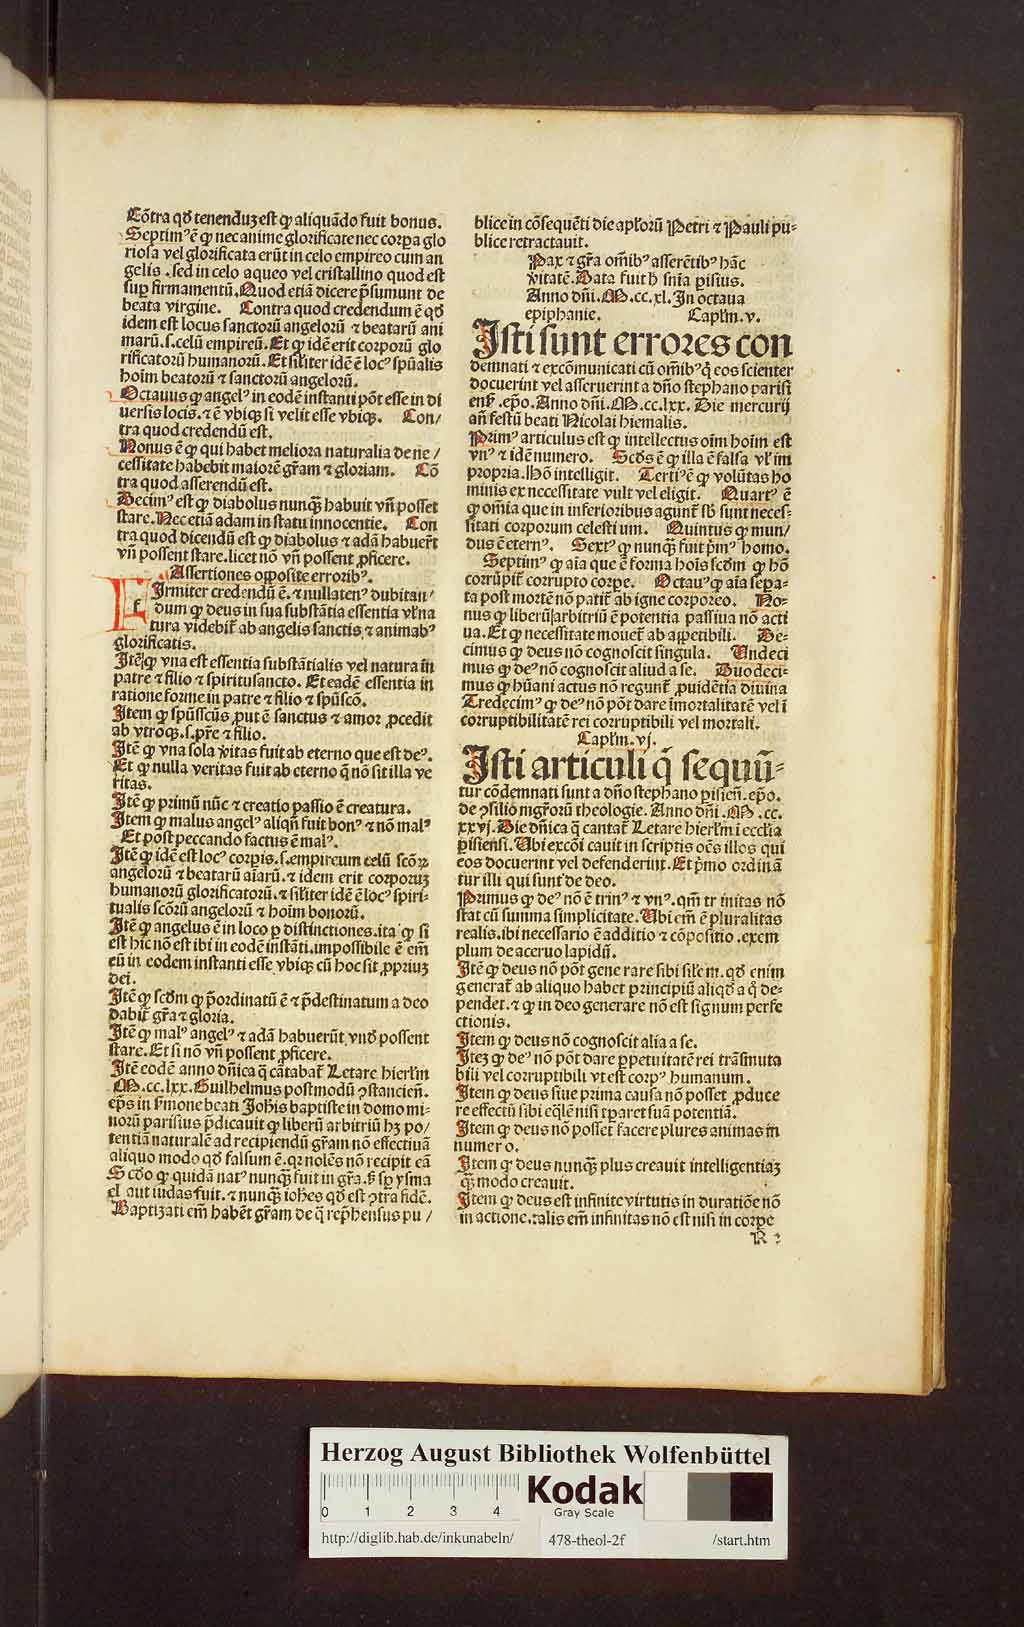 Cõtra qđ tenenduꝫ est ꝙ aliquãdo fuit bonus.
Septimꝰ ē ꝙ nec anime glorificate nec corpa glo
riosa vel glorificata erũt in celo empireo cum an
gelis . sed in celo aqueo vel cristallino quod est
suꝑ firmamentũ. Quod etiã dicere p̃sumunt de
beata virgine. Contra quod credendum ē qđ
idem est locus sanctorũ angelorũ ⁊ beatarũ ani
marũ.s.celũ empireũ. Et ꝙ idē erit corporũ glo
rificatorũ humanorũ. Et siĺiter idē ē locꝰ spũalis
hoĩm beatorũ ⁊ sanctorũ angelorũ.
Octauus ꝙ angelꝰ in eodē instanti põt esse in di
uersis locis. ⁊ ē vbiqꝫ si velit esse vbiqꝫ. Con/
tra quod credendũ est.
Nonus ē ꝙ qui habet meliora naturalia de ne /
cessitate habebit maiorē gr̃am ⁊ gloriam. Cõ
tra quod asserendũ est.
Decimꝰ est ꝙ diabolus nunqꝫ̃ habuit vñ posset
stare. Nec etiã adam in statu innocentie. Con
tra quod dicendũ est ꝙ diabolus ⁊ adã habuer̃t
vñ possent stare. licet nõ vñ possent ꝓficere.
Assertiones opposite erroribꝰ.
Firmiter credendũ ē. ⁊ nullatenꝰ dubitan/
dum ꝙ deus in sua substãtia essentia vĺ na
tura videbit̃ ab angelis sanctis ⁊ animabꝰ
glorificatis.
Itē ꝙ vna est essentia substãtialis vel natura in
patre ⁊ filio ⁊ spiritusancto. Et eadē essentia in
ratione forme in patre ⁊ filio ⁊ spũscõ.
Item ꝙ spũsscũs ꝓut ē sanctus ⁊ amor ꝓcedit
ab vtroqꝫ.s.pr̃e ⁊ filio.
Itē ꝙ vna sola v̾itas fuit ab eterno que est deꝰ.
Et ꝙ nulla veritas fuit ab eterno q̃ nõ sit illa ve
ritas.
Itē ꝙ primũ nũc ⁊ creatio passio ē creatura.
Item ꝙ malus angelꝰ aliqñ fuit bonꝰ ⁊ nõ malꝰ
Et post peccando factus ē malꝰ.
Itē ꝙ idē est locꝰ corpis.s.empireum celũ scõꝝ
angelorũ ⁊ beatarũ aĩarũ. ⁊ idem erit corporuꝫ
humanorũ glorificatorũ. ⁊ siĺiter idē ē locꝰ spiri-
tualis scõrũ angelorũ ⁊ hoĩm bonorũ.
Itē ꝙ angelus ē in loco ꝑ distinctiones. ita ꝙ si
est hic nõ est ibi in eodē instãti. impossibile ē em̃
eũ in eodem instanti esse vbiqꝫ cũ hoc sit ꝓpriuꝫ
dei.
Itē ꝙ scđm ꝙ p̃ordinatũ ē ⁊ p̃destinatum a deo
dabit̃ gr̃a ⁊ gloria.
Itē ꝙ malꝰ angelꝰ ⁊ adã habuerũt vnđ possent
stare. Et si nõ vñ possent ꝓficere.
Itē eodē anno dñica q̃ cãtabat̃ Letare hierĺm
M.cc.lxx. Guilhelmus postmodũ ꝯstancieñ.
ep̃s in s̾mone beati Joh̃is baptiste in domo mi-
norũ parisius p̃dicauit ꝙ liberũ arbitriũ hꝫ po/
tentiã naturalē ad recipiendũ gr̃am nõ effectiuã
aliquo modo qđ falsum ē. qꝛ nolēs nõ recipit eã
Scđo ꝙ quidã natꝰ nunqꝫ̃ fuit in gr̃a. s̾ sp̱ ysma
el aut iudas fuit. ⁊ nunqꝫ̃ ioh̃es qđ est ꝯtra fidē.
Baptizati em̃ habẽt gr̃am de q̃ rep̃hensus pu /
blice in cõsequēti die apĺorũ Petri ⁊ Pauli pu-
blice retractauit.
Pax ⁊ gr̃a om̃ibꝰ asserētibꝰ hãc
v̾itatē. Data fuit h̾ sñia ꝑisius.
Anno dñi. M.cc.xl. In octaua
epiphanie. Capĺm.v.
Isti sunt errores con
demnati ⁊ excõmunicati cũ om̃ibꝰ q̃ eos scienter
docuerint vel asseruerint a dño stephano parisi
eñ. ep̃o. Anno dñi. M.cc.lxx. Die mercurij
añ festũ beati Nicolai hiemalis.
Primꝰ articulus est ꝙ intellectus oĩm hoĩm est
vnꝰ ⁊ idē numero. Scđs ē ꝙ illa ē falsa vĺ im
propria. Hõ intelligit. Tertiꝰ ē ꝙ volũtas ho
minis ex necessitate vult vel eligit. Quartꝰ ē
ꝙ om̃ia que in inferioribus agunt̃ sb̾ sunt neces-
sitati corporum celesti um. Quintus ꝙ mun/
dus ē eternꝰ. Sextꝰ ꝙ nunqꝫ̃ fuit p̃mꝰ homo.
Septimꝰ ꝙ aĩa que ē forma hoĩs scđm ꝙ hõ
corrũpit̃ corrupto corpe. Octauꝰ ꝙ aĩa sepa-
ta post mortē nõ patit̃ ab igne corporeo. No-
nus ꝙ liberũ arbitriũ ē potentia passiua nõ acti
ua. Et ꝙ necessitate mouet̃ ab appetibili. De-
cimus ꝙ deus nõ cognoscit singula. Undeci
mus ꝙ deꝰ nõ cognoscit aliud a se. Duodeci-
mus ꝙ hũani actus nõ regunt̃ ꝓuidētia diuina
Tredecimꝰ ꝙ deꝰ nõ põt dare imortalitatē vel ĩ
corruptibilitatē rei corruptibili vel mortali.
Capĺm.vj.
Isti articuli q̃ sequũ-
tur cõdemnati sunt a dño stephano ꝑisieñ. ep̃o.
de ꝯsilio mgr̃orũ theologie. Anno dñi. M.cc.
xxvj. Die dñica q̃ cantat̃ Letare hierĺm ĩ ecclĩa
ꝑisiensi. Ubi excõi cauit in scriptis oẽs illos qui
eos docuerint vel defenderint. Et p̃mo ordinã
tur illi qui sunt de deo.
Primus ꝙ deꝰ nõ ē trinꝰ ⁊ vnꝰ. qm̃ tr initas nõ
stat cũ summa simplicitate. Ubi em̃ ē pluralitas
realis. ibi necessario ē additio ⁊ cõpositio. exem
plum de aceruo lapidũ.
Itē ꝙ deus nõ põt gene rare sibi sile̾ m. qđ enim
generat̃ ab aliquo habet principiũ aliqđ a q̃ de-
pendet. ⁊ ꝙ in deo generare nõ est signum perfe
ctionis.
Item ꝙ deus nõ cognoscit alia a se.
Iteꝫ ꝙ deꝰ nõ põt dare ꝑpetuitatē rei trãsmuta
bili vel corruptibili vt est corpꝰ humanum.
Item ꝙ deus siue prima causa nõ posset ꝓduce
re effectũ sibi eq̃lē nisi tꝑaret suã potentiã.
Item ꝙ deus nõ posset facere plures animas in
numer o.
Item ꝙ deus nunqꝫ̃ plus creauit intelligentiaꝫ
qꝫ̃ modo creauit.
Item ꝙ deus est infinite virtutis in duratiõe nõ
in actione. talis em̃ infinitas nõ est nisi in corpe
R 2
Herzog August Bibliothek Wolfenbüttel
0 1 2 3 4
Kodak
Gray Scale
http://diglib.hab.de/inkunabeln/ 478-theol-2f /start.htm